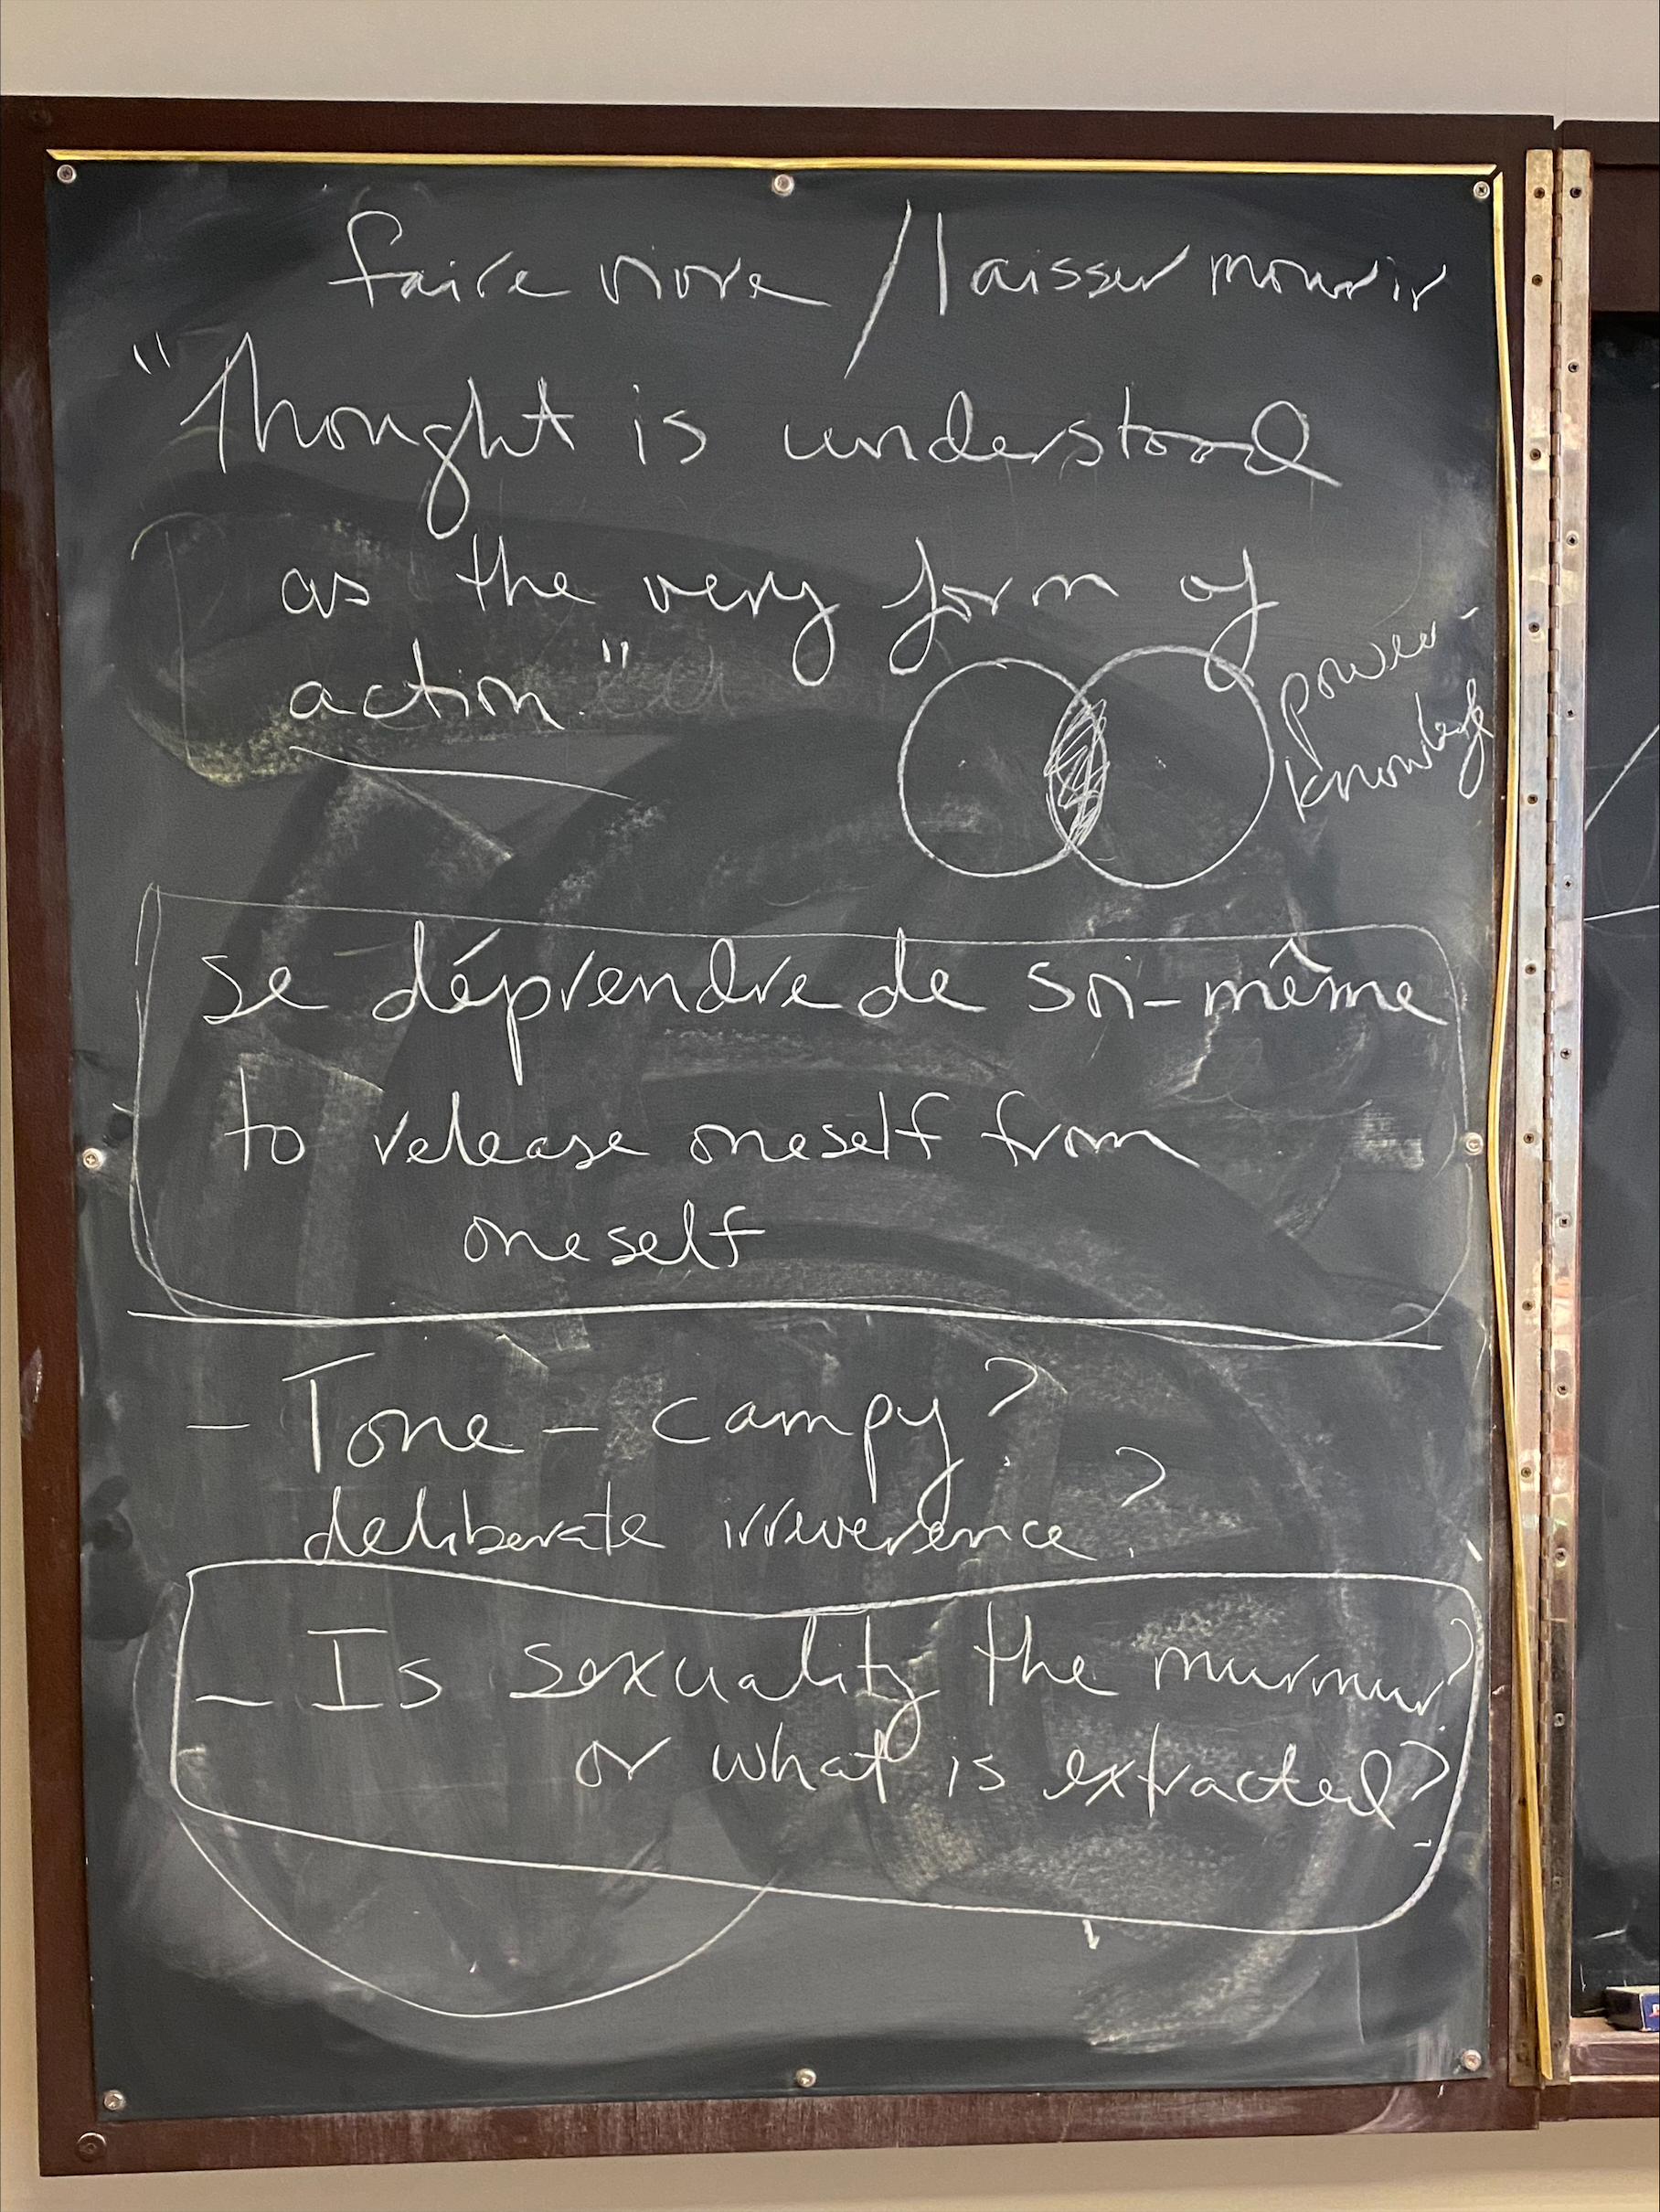 faire vivre / laisser mourir
"Thought is understood
as the very form of
action."
power-
knowledge
se déprendre de soi-même
to release oneself from
oneself
- Tone - campy?
deliberate irreverence?
- Is sexuality the murmur?
or what is extracted?